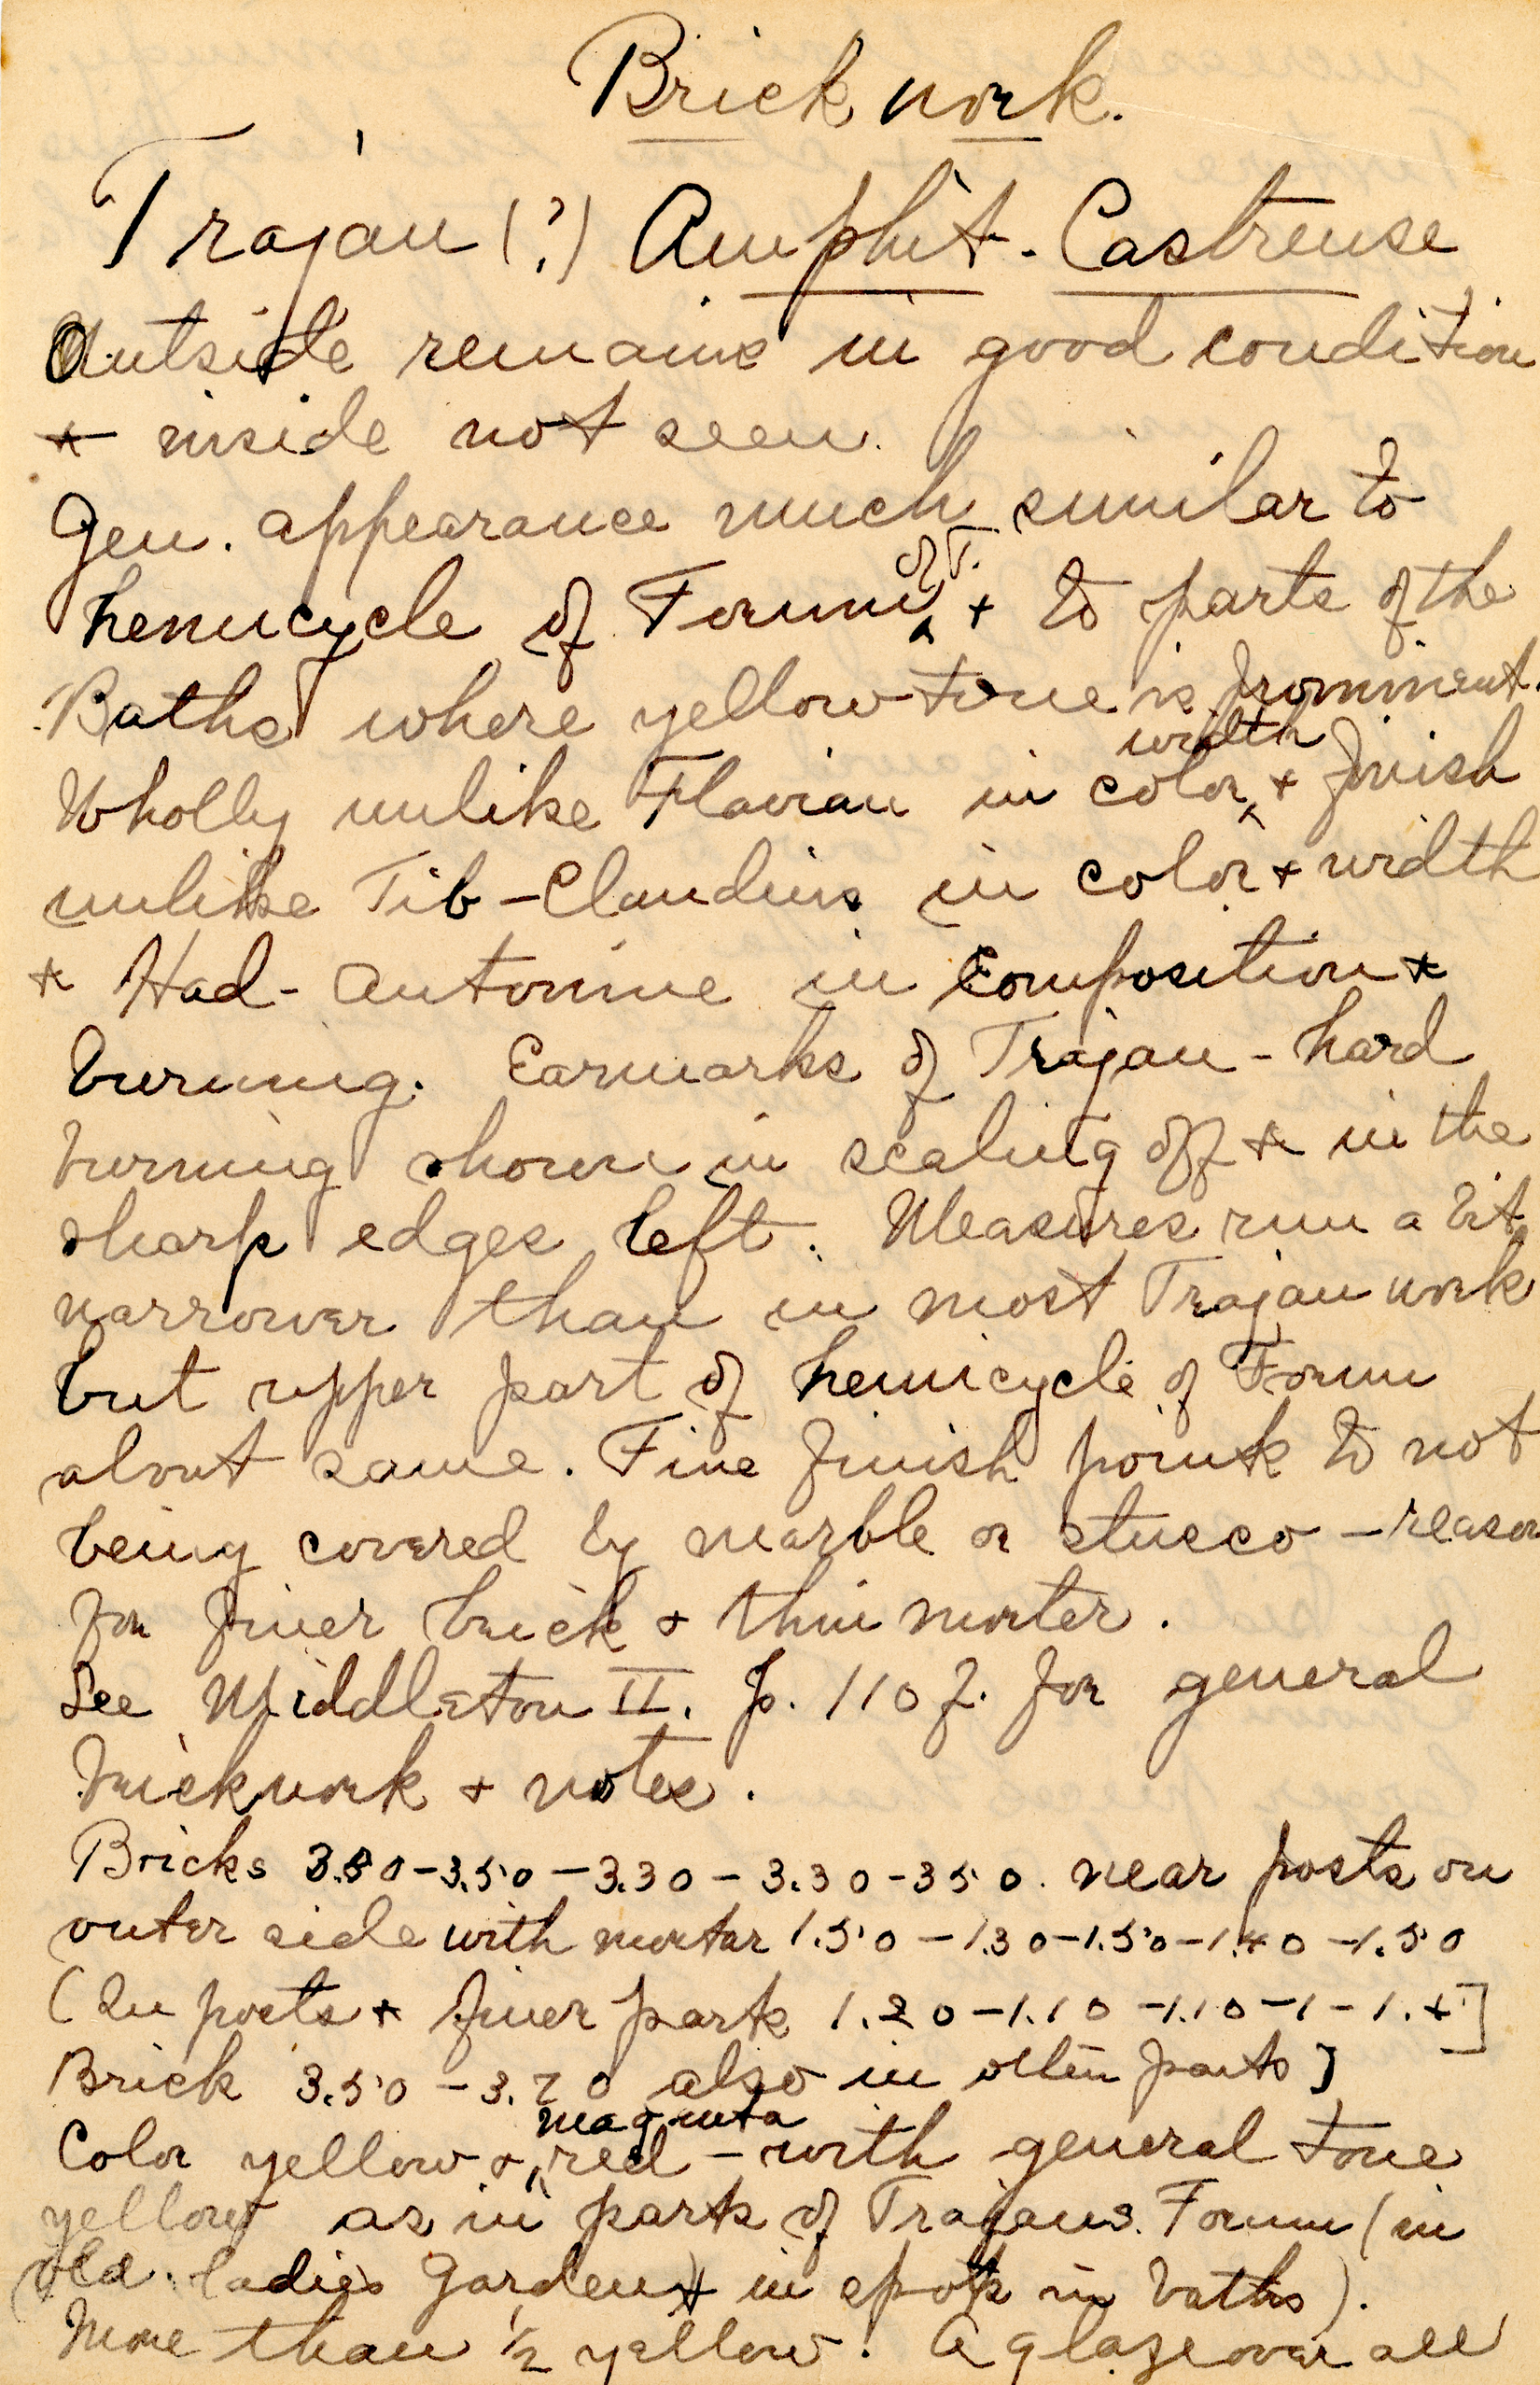 Brick work.
Trajan (?) Amphit. Castrense
Outside remains in good condition
+ inside not seen.
Gen. appearance much similar to
hemicycle of Forum of T. + to parts of the
Baths where yellow tone is prominent.
Wholly unlike Flavian in color, width + finish
unlike Tib-Claudius in color + width
+ Had-Antonine in composition +
burning. Earmarks of Trajan - hard
burning shown in scaling off + in the
sharp edges left. Measures run a bit
narrower than in most Trajan work
but upper part of hemicycle of Forum
about same. Fine finish points to not
being covered by marble or stucco - reason
for finer brick + thin morter.
See Middleton II. p. 110 f. for general
brickwork + notes.
Bricks 3.50-3.50-3.30-3.30-350. near posts on
outer side with mortar 1.50-1.30-1.50-1.40-1.50
(In posts + finer parts 1.20-1.10-1.10-1-1.+]
Brick 3.50-3.70 also in other parts]
Color yellow + magenta red - with general tone
yellow as in parts of Trajans Forum (in
old ladies garden) + in spots in baths).
More than 1/2 yellow. A glaze over all